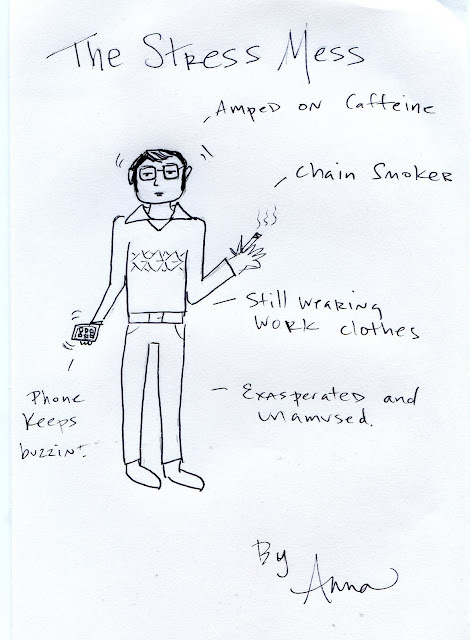 The Stress Mess
Amped on Caffeine
Chain Smoker
Still wearing
work clothes
Phone
keeps
buzzin'.
Exasperated and
unamused.
By
Anna